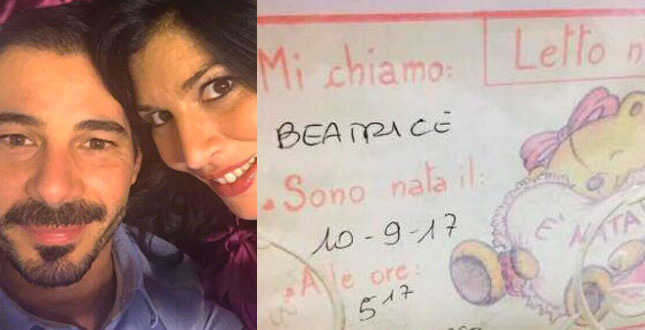 Mi chiamo:
Letto n
BEATRICE
Sono nata il:
10-9-17
Alle ore:
5 17
E' NATA